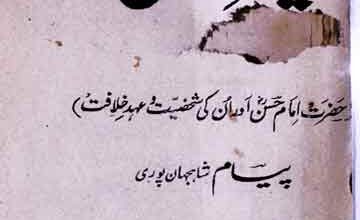 (حضرت امام حسنؓ اور اُن کی شخصیت و عہدِ خلافت)
پیام شاہجہان پوری